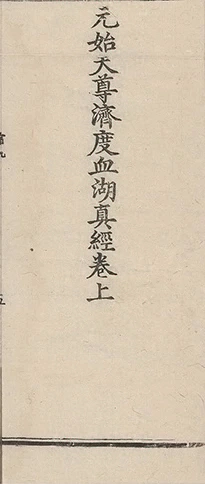 元始天尊濟度血湖真經卷上